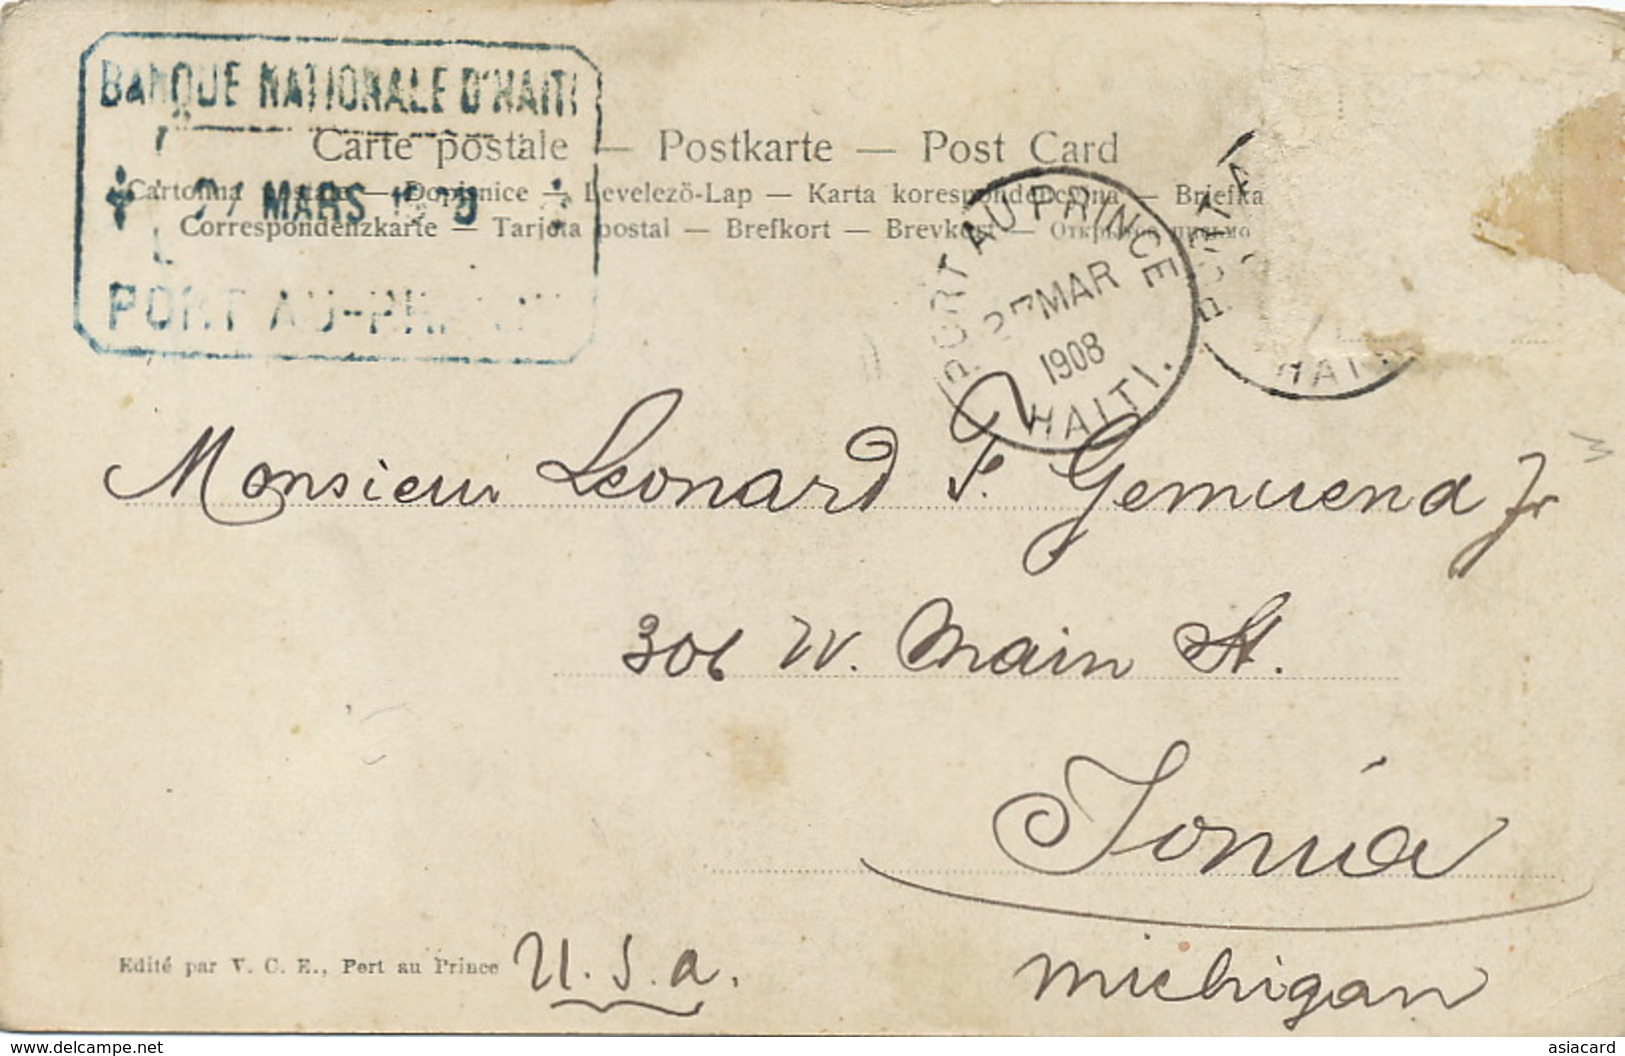 BANQUE NATIONALE D'HAITI
Carte postale — Postkarte — Post Card
Cartolina — Dopisnice — Levelezö-Lap — Karta korespondencyjna — Briefka
Correspondenzkarte — Tarjeta postal — Brefkort — Brevkort — Открытое письмо
MARS
PORT AU-PRINCE
PORT AU PRINCE
27 MAR
1908
HAITI.
PORT
HAITI
Monsieur Leonard F. Gemuend Jr
306 W. Main St.
Ionia
Michigan
U.S.A.
Edité par V. C. E., Port au Prince
www.delcampe.net
asiacard